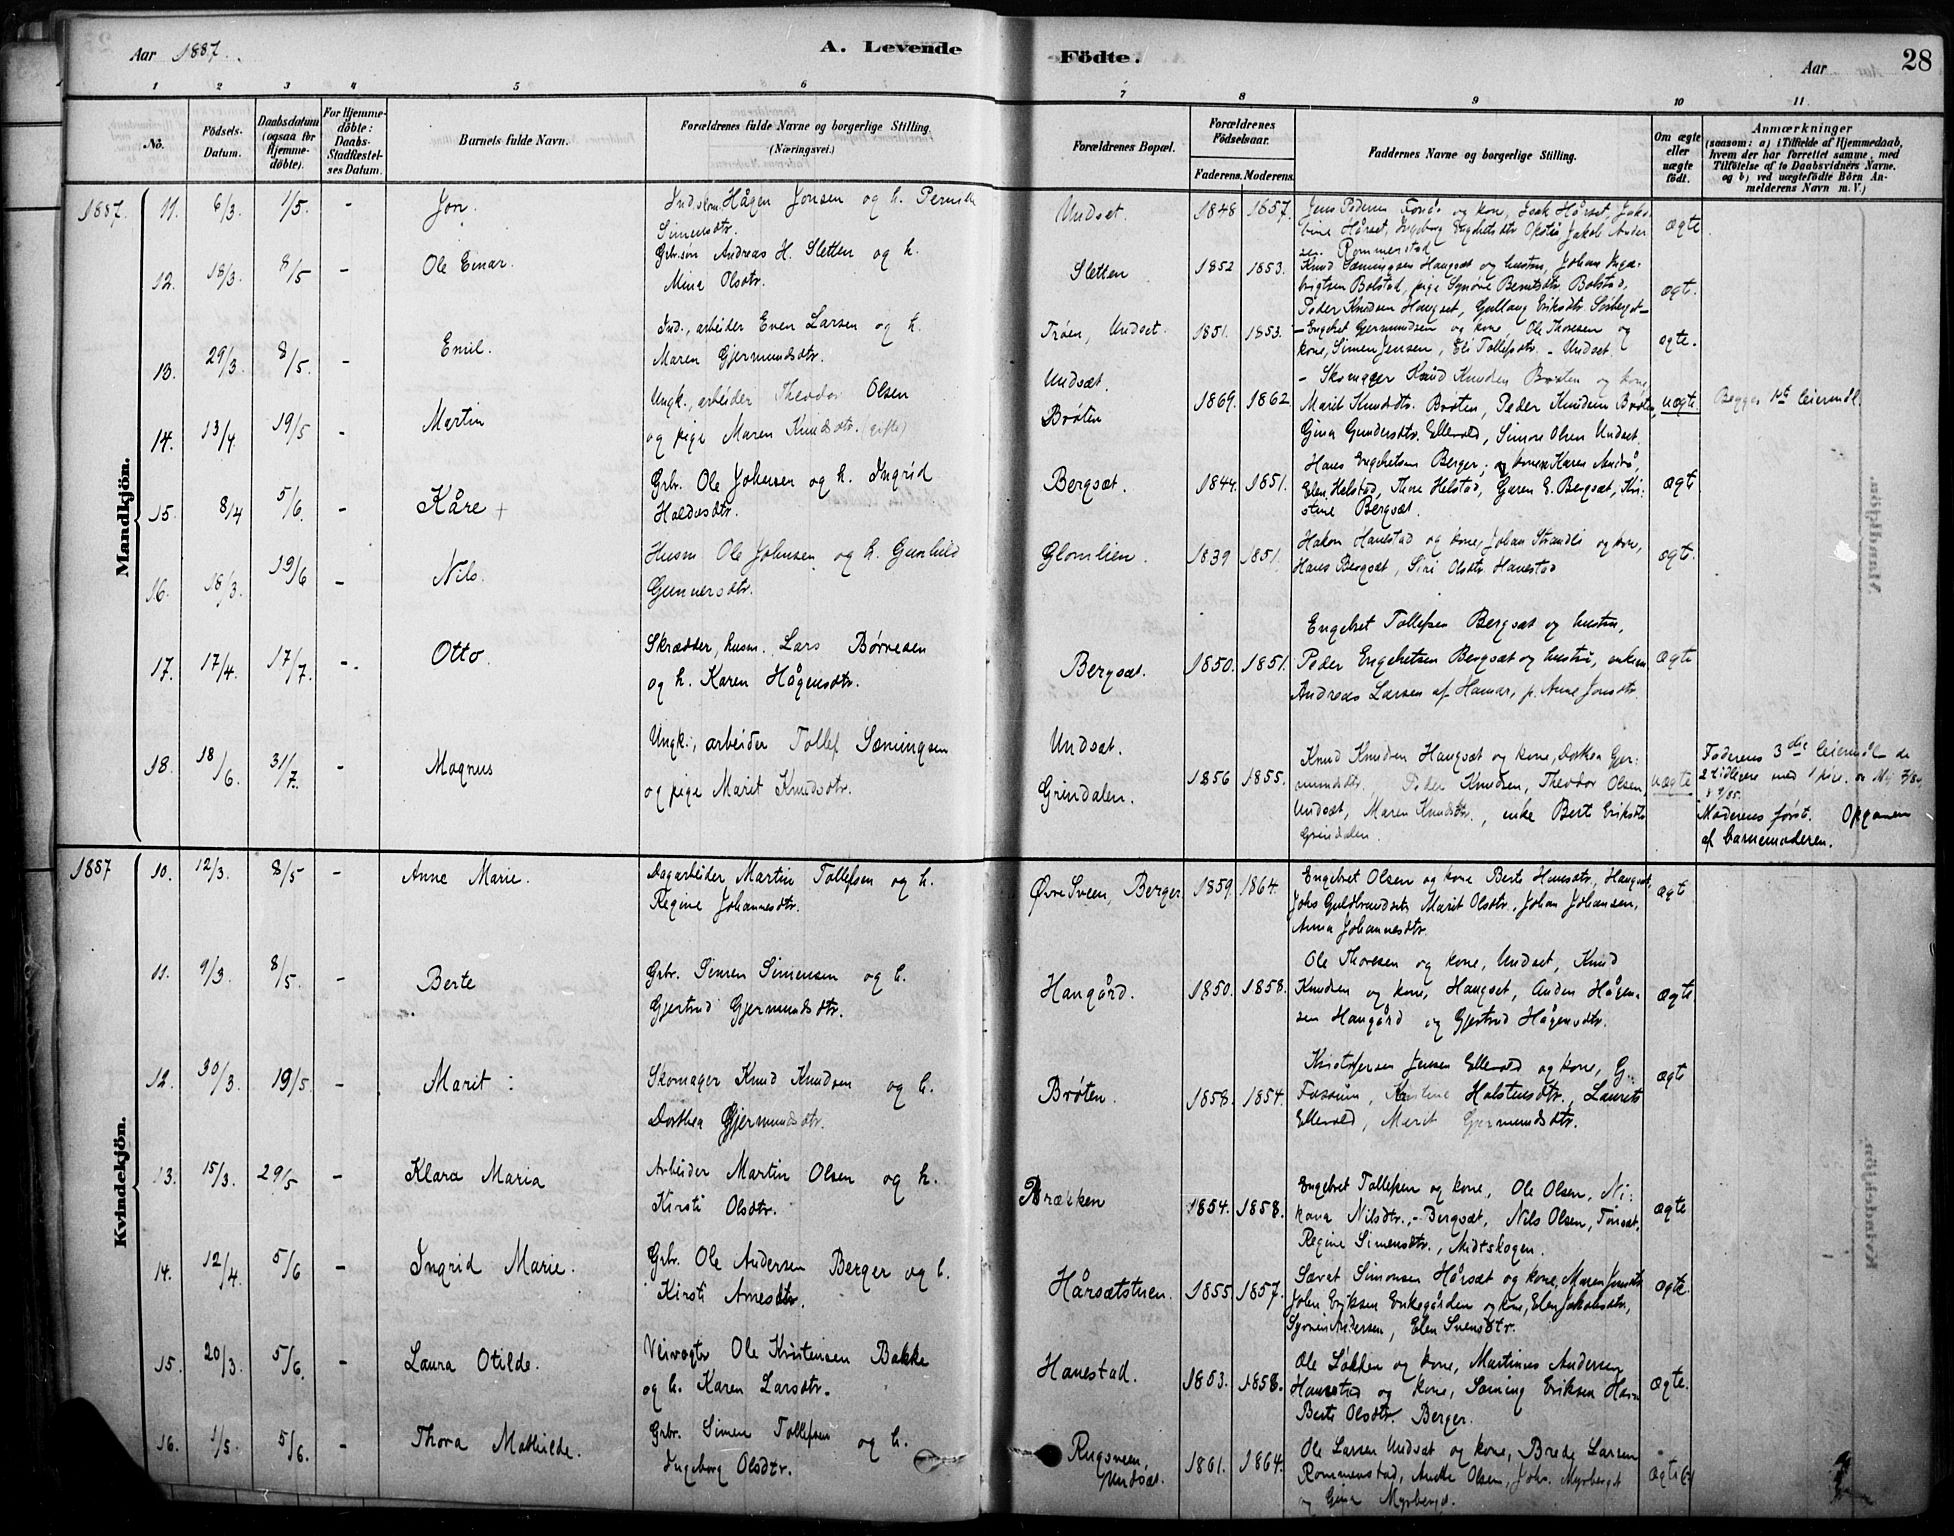 Aar 1887.
A. Levende Födte.
Aar
28
1 2 3 4 5 6 7 8 9 10 11
No.
Födsels-Datum.
Daabsdatum (ogsaa for Hjemme-döbte).
For Hjemme-döbte: Daabs-Stadfæstel-ses Datum.
Barnets fulde Navn.
Forældrenes fulde Navne og borgerlige Stilling. (Næringsvei.)
Forældrenes Bopæl.
Forældrenes Födselsaar.
Faderens. Moderens.
Faddernes Navne og borgerlige Stilling.
Om ægte eller uægte födt.
Anmærkninger
(saasom: a) i Tilfælde af Hjemmedaab, hvem der har forrettet samme, med Tilföielse af to Daabsvidners Navne, og b) ved uægtefödte Börn Anmelderens Navn m. V.)
Mandkjön.
1887. 11. 6/3 1/5 - Jon
Hågen Jonsen og h. Pernille
Simensdtr.
Undset. 1848 1857.
ægte
12. 18/3 8/5 - Ole Einar.
Gbr.søn Andreas H. Sletten og h.
Mina Olsdtr.
Sletten 1852 1853.
Peder Knudsen Hangset,
ægt.
13. 29/3 8/5 - Emil.
Ind., arbeider Even Larsen og h.
Maren Gjermundsdtr.
Trøen, Undset. 1851. 1853.
- Engebret Gjermundsen og kone, Ole Thoresen og
kone, Simen Jensen, Eli Tollefsdtr. - Undset.
ægte.
14. 13/4 19/5 - Martin
Ungk., arbeider Theodor Olsen
og pige Maren Knudsdtr. (gifte)
Undsæt.
Brøten
1869. 1862
- Skomager Knud Knudsen Brøten og kone
Marit Knudsdtr. Brøten, Peder Knudsen Brøten,
Gina Gundersdtr. Ellevold, Simon Olsen Undset.
uægte.
Begges 1ste leiermål.
15. 8/4 5/6. - Kåre +
Gbr. Ole Johnsen og h. Ingrid
Haldosdtr.
Bergsæt. 1844. 1851.
Hans Engebretsen Berger,
Elen Helstad, Thore Helstad, Karen E. Bergsæt, Kri-
stine Bergsæt.
ægt
16. 18/3. 19/6 - Nils.
Husm Ole Johnsen og h. Gunhild
Gunnersdtr.
Glomlien. 1839 1851.
Håkon Hanestad og kone, Johan Strandli og kone,
Hans Bergsæt, Siri Olsdtr. Hanestad
ægt.
17. 17/4. 17/7. - Otto.
Skrædder, husm. Lars Børresen
og h. Karen Hågensdtr.
Bergsæt. 1850. 1851.
Engebret Tollefsen Bergsæt og hustru,
Peder Engebretsen Bergsæt og hustru, enkem.
Andreas Larsen af Hamar, p. Anne Jonsdtr.
ægte
18. 18/6. 31/7. - Magnus
Ungk., arbeider Tollef Sæmingsen
og pige Marit Knudsdtr.
Undsæt.
Grindalen.
1856 1855.
Knud Knudsen Hangset og kone, Dorthea Gjer-
mundsdtr. Peder Knudsen, Theodor Olsen,
Undsæt, Maren Knudsdtr., enke Bert Eriksdtr
Grindalen.
uægte
Faderens 3die leiermål de
2 tidligere med 1 pige.
Moderens først.
af barnemoderen.
Kvindekjön.
1887 10. 12/3. 8/5 - Anne Marie.
Dagarbeider Martin Tollefsen og h.
Regine Johannesdtr.
Øvre Sveen, Berger. 1859. 1864.
Engebret Olsen og kone Berte Hansdtr., Hangset,
Johs Guldbrandsen Marit Olsdtr., Johan Johansen,
Anna Johannesdtr.
ægt
11. 9/3 8/5. - Berte
Gbr. Simen Simensen og h.
Gjertrud Gjermundsdtr.
Hangård. 1850. 1858.
Ole Thoresen og kone, Undset, Knud
Knudsen og kone, Hangset, Anders Hågen-
sen Hangård og Gjertrud Hågensdtr.
ægte
12. 30/3. 19/5. - Marit
Skomager Knud Knudsen og h.
Dorthea Gjermundsdtr.
Brøten. 1858. 1854.
Kristofersen Jensen Ellevold og kone, G.
Fossum, Karline Halstensdtr., Laurits
Ellevold, Marit Gjermundsdtr.
ægt
13. 15/3. 29/5 - Klara Maria
Arbeider Martin Olsen og h.
Kirsti Olsdtr.
Brækken 1854. 1858.
Engebret Tollefsen og kone, Ole Olsen, Ni-
kava Nilsdtr., - Bergsæt, Nils Olsen, Tønset,
Regine Simensdtr., Midtskogen.
ægte
14. 12/4 5/6 - Ingrid Marie.
Gbr. Ole Andersen Berger og h.
Kirsti Arnesdtr.
Hårsætstuen. 1855. 1857.
Simonsen Hårsæt og kone, Maren
John Eriksen Enkegården og kone, Elen Jakobsdtr,
Andersen, Elen Svensdtr.
ægte
15. 20/3. 5/6. - Laura Otilde.
Veivogter Ole Kristensen Bakke
og h. Karen Larsdtr.
Hanestad. 1853. 1858.
Ole Løkken og kone, Martinus Andersen
Hanestad og kone, Sæming Eriksen Hane
Berte Olsdtr. Berger.
ægte.
16. 1/5. 5/6. - Thora Mathilde.
Gbr. Simen Tollefsen og h.
Ingeborg Olsdtr.
Rugsveen, Undsæt. 1861. 1864.
Ole Larsen Undsæt og kone, Brede Larsen
Rommenstad, Anette Olsen, Johs. Myrbergst
og Gina Myrbergst.
ægte